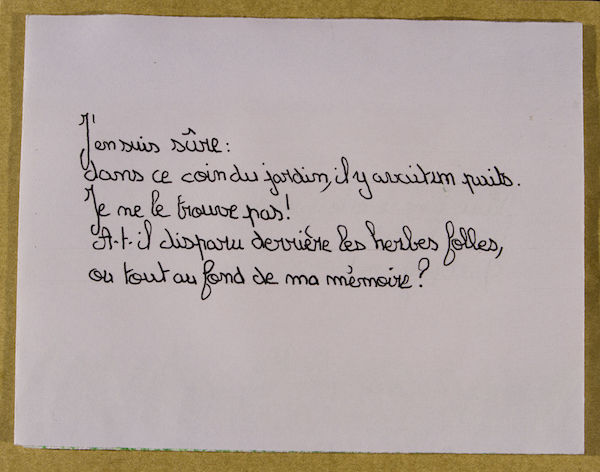 J'en suis sûre :
dans ce coin du jardin, il y avait un puits.
Je ne le trouve pas !
A-t-il disparu derrière les herbes folles,
ou tout au fond de ma mémoire ?